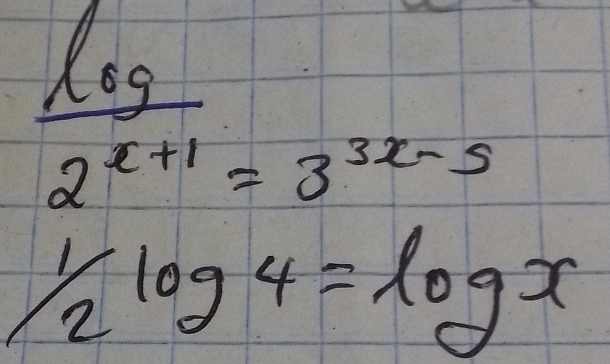 log
2^{x+1} = 3^{3x-5}
1/2 log 4 = log x